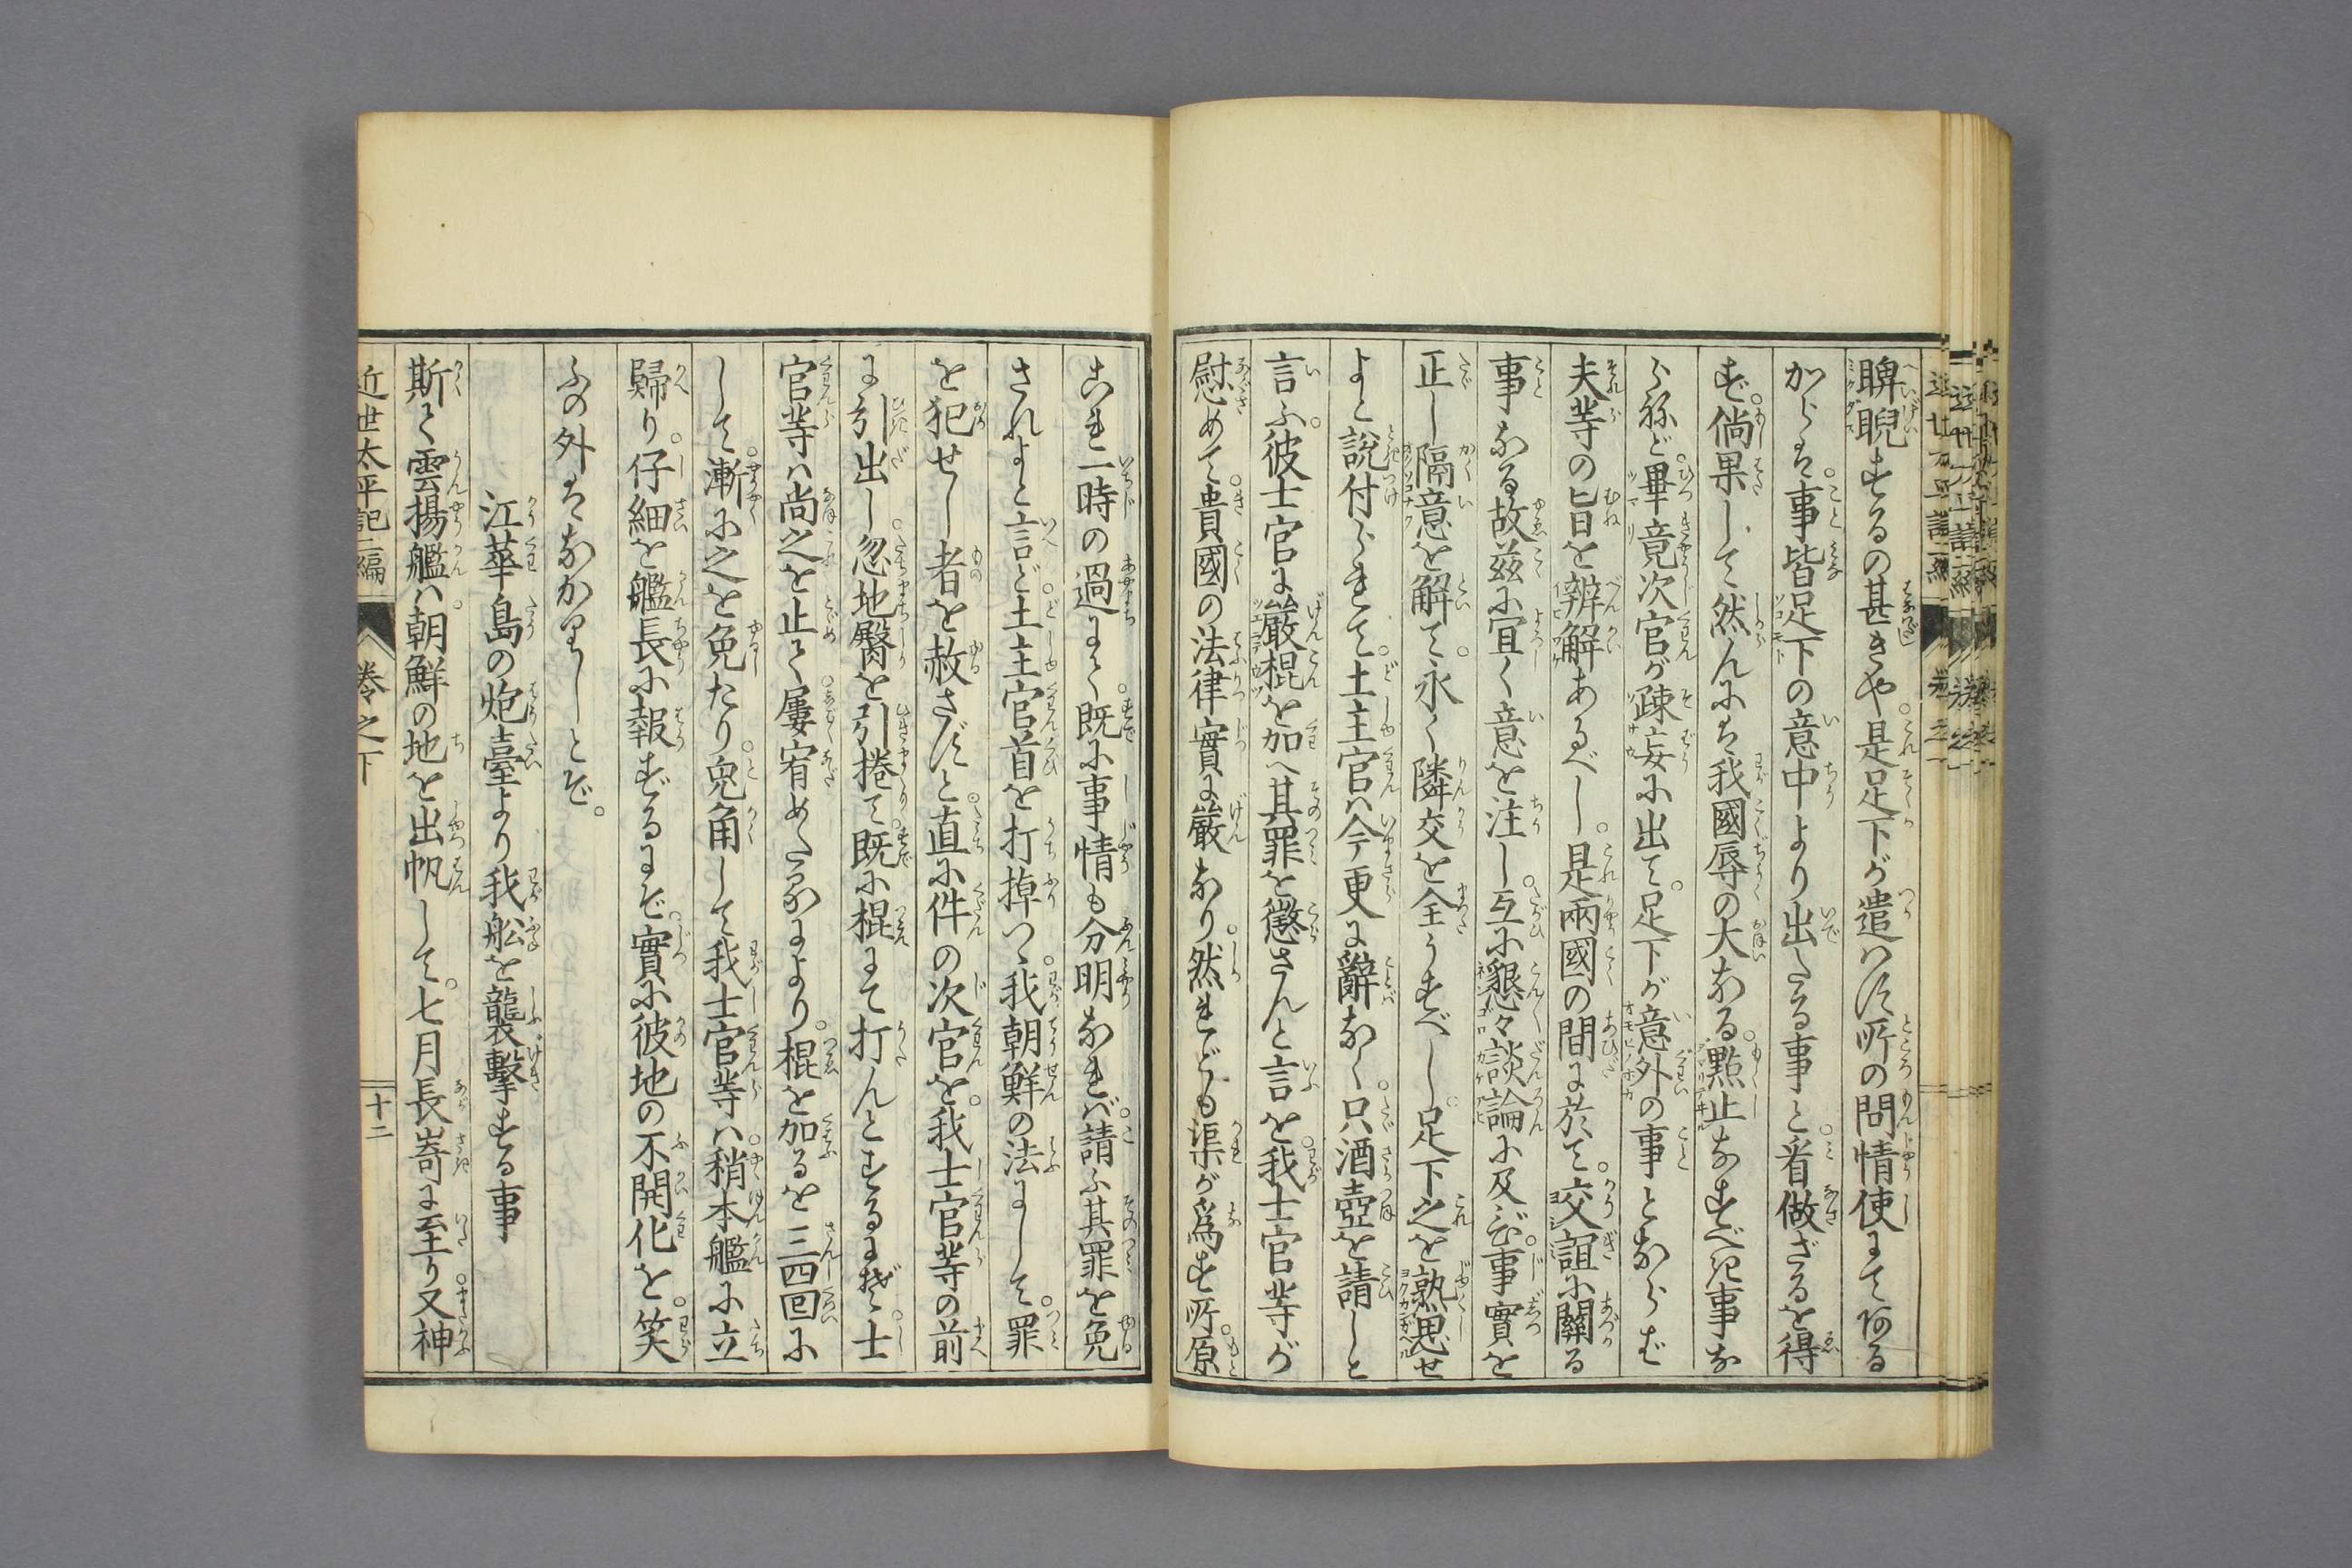 睥睨するの甚きや。是足下が遣はす所の問情使にて有る
からは。事皆足下の意中より出たる事と。看做ざるを得
ず。倘果して然んには。我國辱の大なる。默止なすべき事な
らねど。畢竟次官が疎妄に出て。足下が意外の事とならば
夫等の旨を辨解あるべし。是兩國の間に於て。交誼に關る
事なる故茲に宜く意を注し。互に懇々談論に及び。事實を
正し隔意を解て。永く隣交を全うすべし。足下之を熟思せ
よと説付られて。土主官ハ今更に辭なく。只酒壺を請しと
言ふ。彼士官に嚴棍を加へ其罪を懲さんと言を。我士官等が
慰めて。貴國の法律實に嚴なり。然れども渠が爲す所。原
これ一時の過にて。既に事情も分明なれば。請ふ其罪を免
されよと言ど。土主官首を打掉つゝ。我朝鮮の法にして。罪
を犯せし者を赦さずと。直に件の次官を。我士官等の前
に引出し。忽地臀を引捲て。既に棍にて打んとするにぞ。士
官等ハ尚之を止て。屡宥めたるにより。棍を加るを三四回に
して。漸に之を免たり。兎角して我士官等ハ。稍本艦に立
歸り。仔細を艦長に報ずるにぞ。實に彼地の不開化を。笑
ふの外はなかりしとぞ。
江華島の炮臺より我舩を襲擊する事
斯て雲揚艦ハ。朝鮮の地を出帆して。七月長嵜に至り。又神
近世太平記二編 卷之下 十二